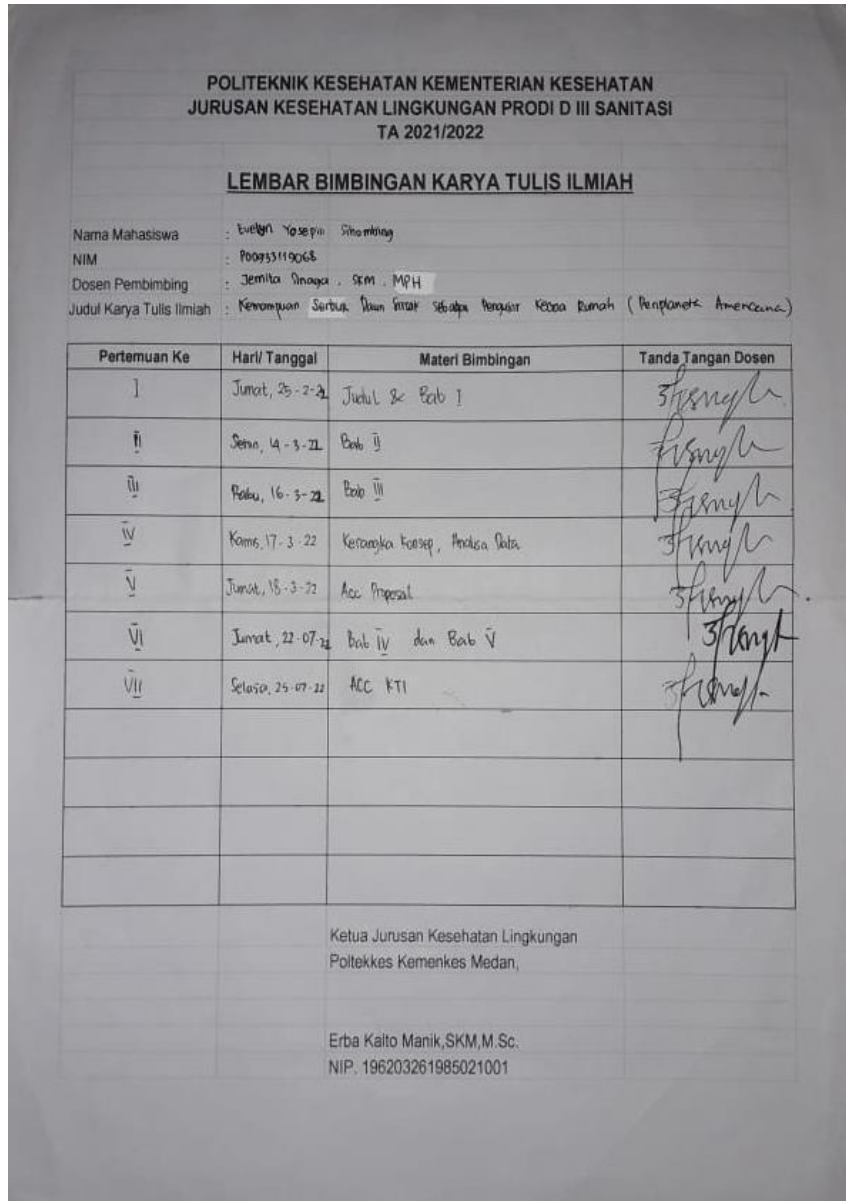 POLITEKNIK KESEHATAN KEMENTERIAN KESEHATAN
JURUSAN KESEHATAN LINGKUNGAN PRODI D III SANITASI
TA 2021/2022
LEMBAR BIMBINGAN KARYA TULIS ILMIAH
Nama Mahasiswa : Evelyn Yosepin Sihombing
NIM : P00933119068
Dosen Pembimbing : Jemita Sinaga, SKM, MPH
Judul Karya Tulis Ilmiah : Kemampuan Serbuk Daun Sirsak Sebagai Pengusir Kecoa Rumah (Periplaneta Americana)
Pertemuan Ke Hari/ Tanggal Materi Bimbingan Tanda Tangan Dosen
I Jumat, 25-2-22 Judul & Bab I
II Senin, 14-3-22 Bab II
III Rabu, 16-3-22 Bab III
IV Kamis, 17-3-22 Kerangka Konsep, Analisa Data
V Jumat, 18-3-22 Acc Proposal
VI Jumat, 22-07-22 Bab IV dan Bab V
VII Selasa, 25-07-22 ACC KTI
Ketua Jurusan Kesehatan Lingkungan
Poltekkes Kemenkes Medan,
Erba Kalto Manik,SKM,M.Sc.
NIP. 196203261985021001